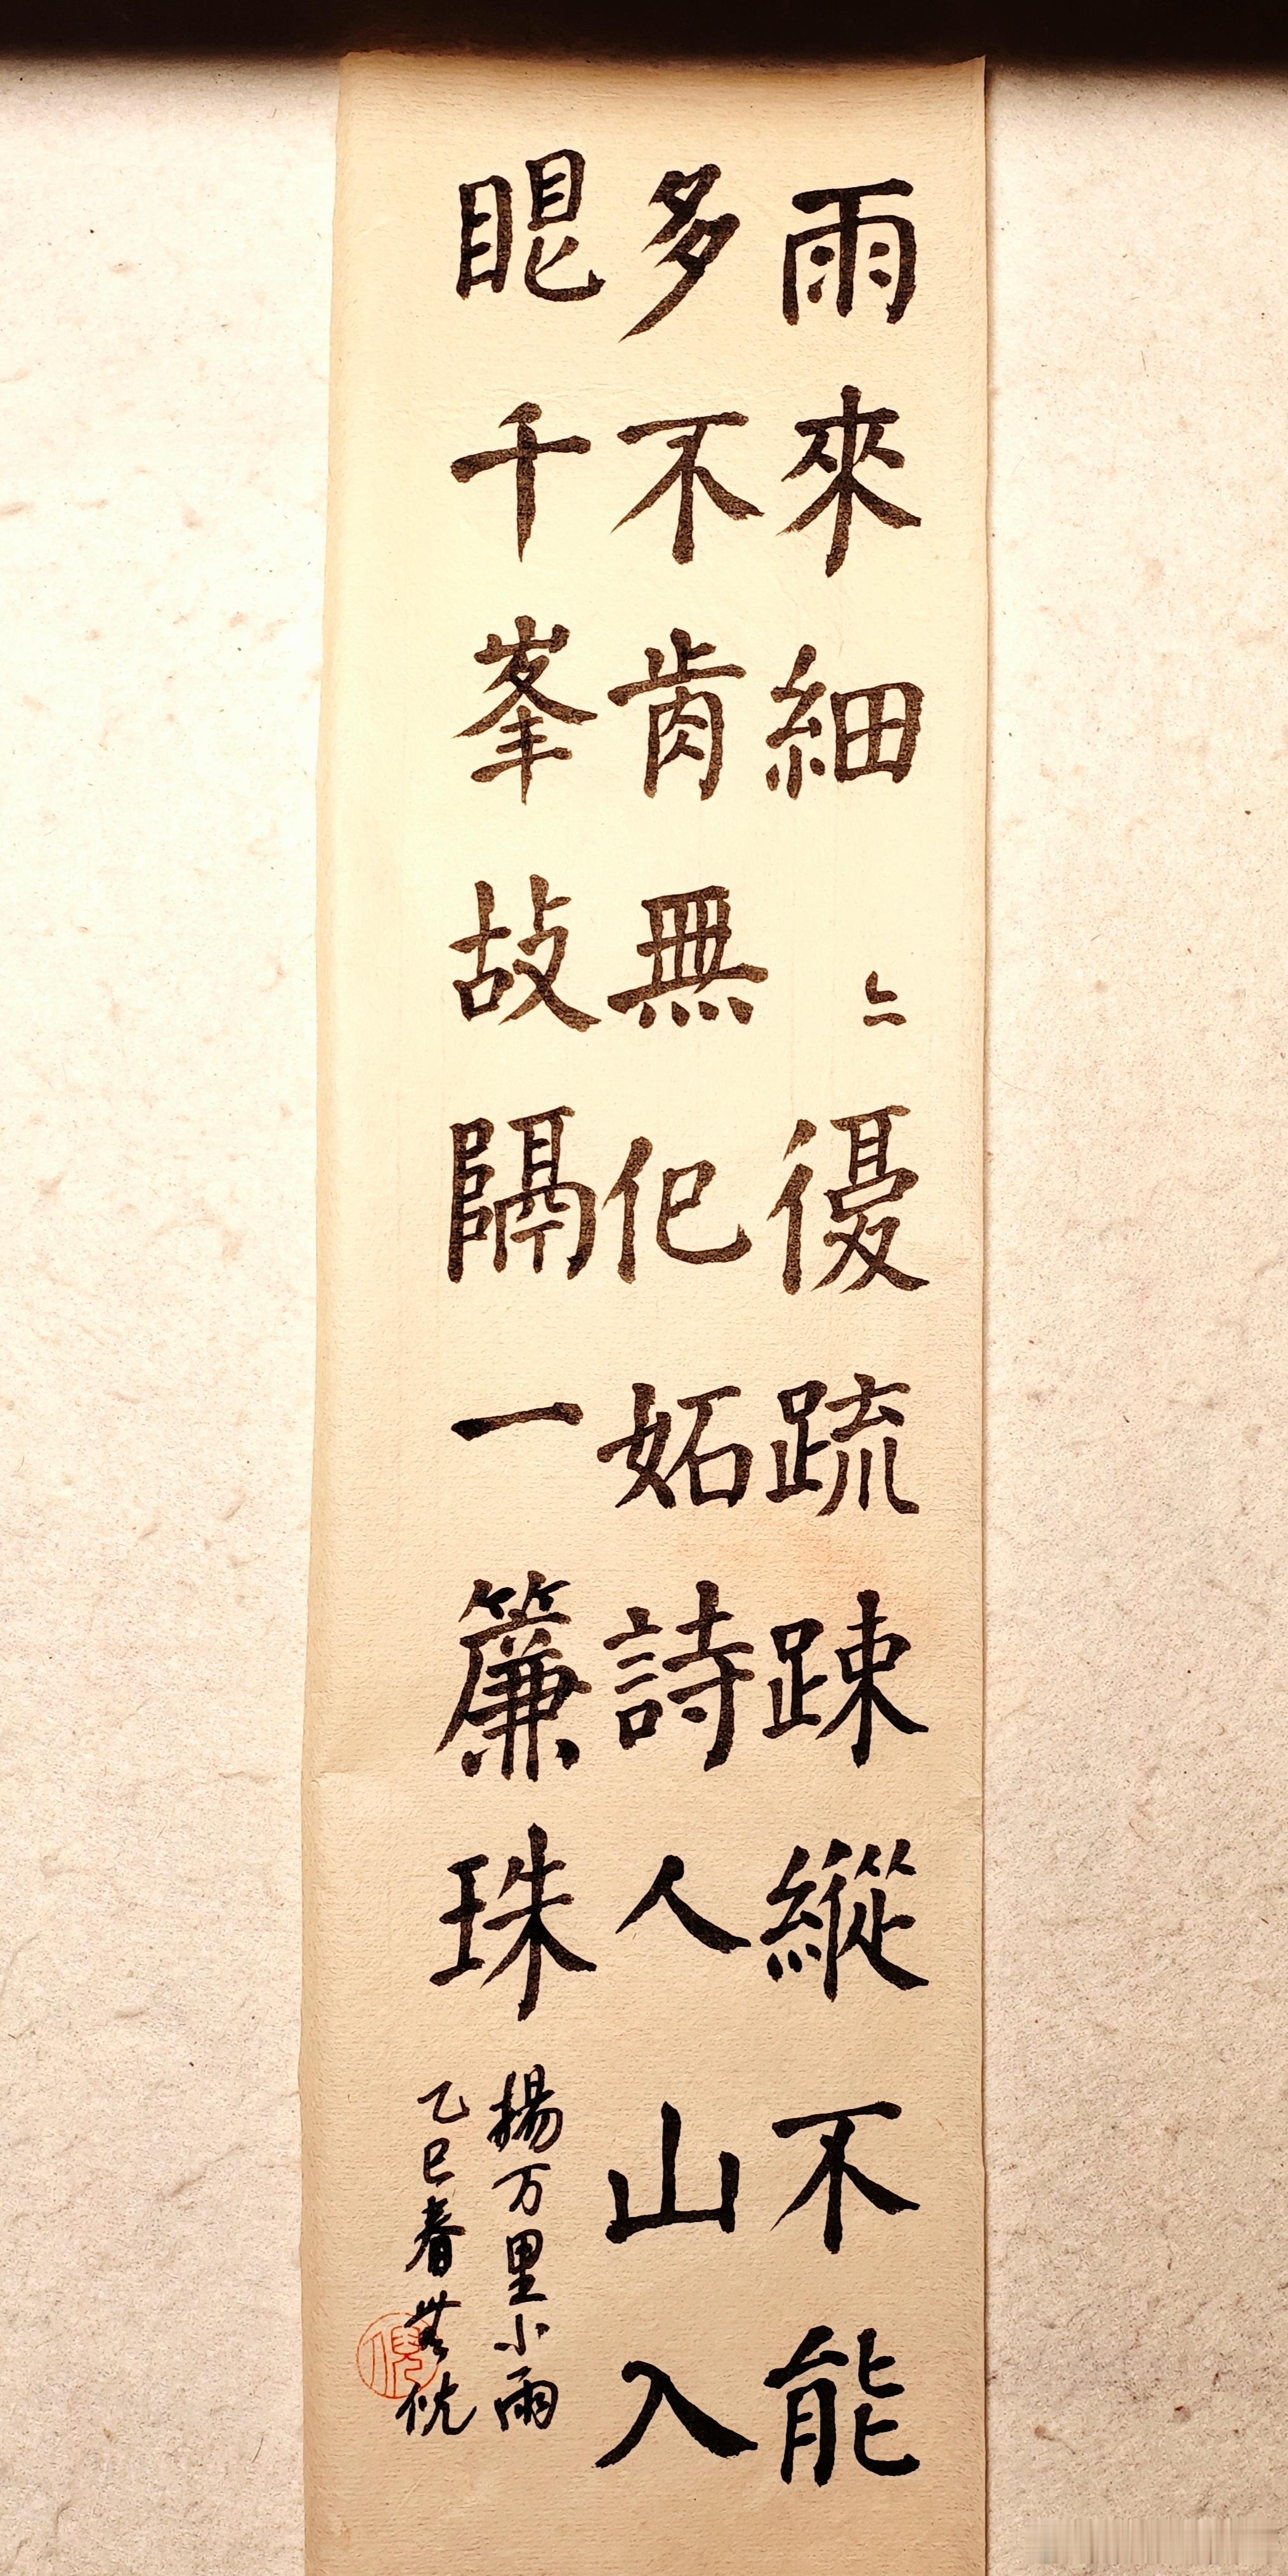 雨來細〻復疏踈縱不能
多不肯無佀妬詩人山入
眼千峯故隔一簾珠
揚万里小雨
乙巳春
倪